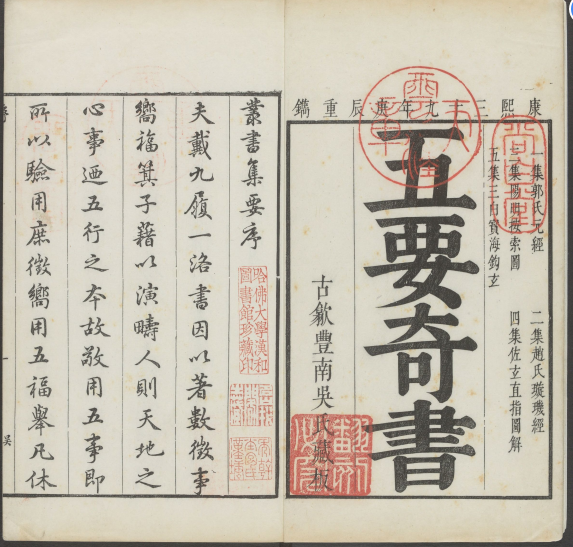 康熙三十九年庚辰重鐫
一集郭氏元經　二集趙氏璇璣經
三集陽明按索圖　四集佐玄直指圖解
五集三白寶海鈎玄
五要奇書
古歙豐南吳氏藏板
叢書集要序
夫戴九履一洛書因以著數徵事
嚮福箕子藉以演疇人則天地之
心事廼五行之本故敬用五事即
所以驗用庶徵嚮用五福舉凡休
哈佛大學漢和
圖書館珍藏印
一
吳